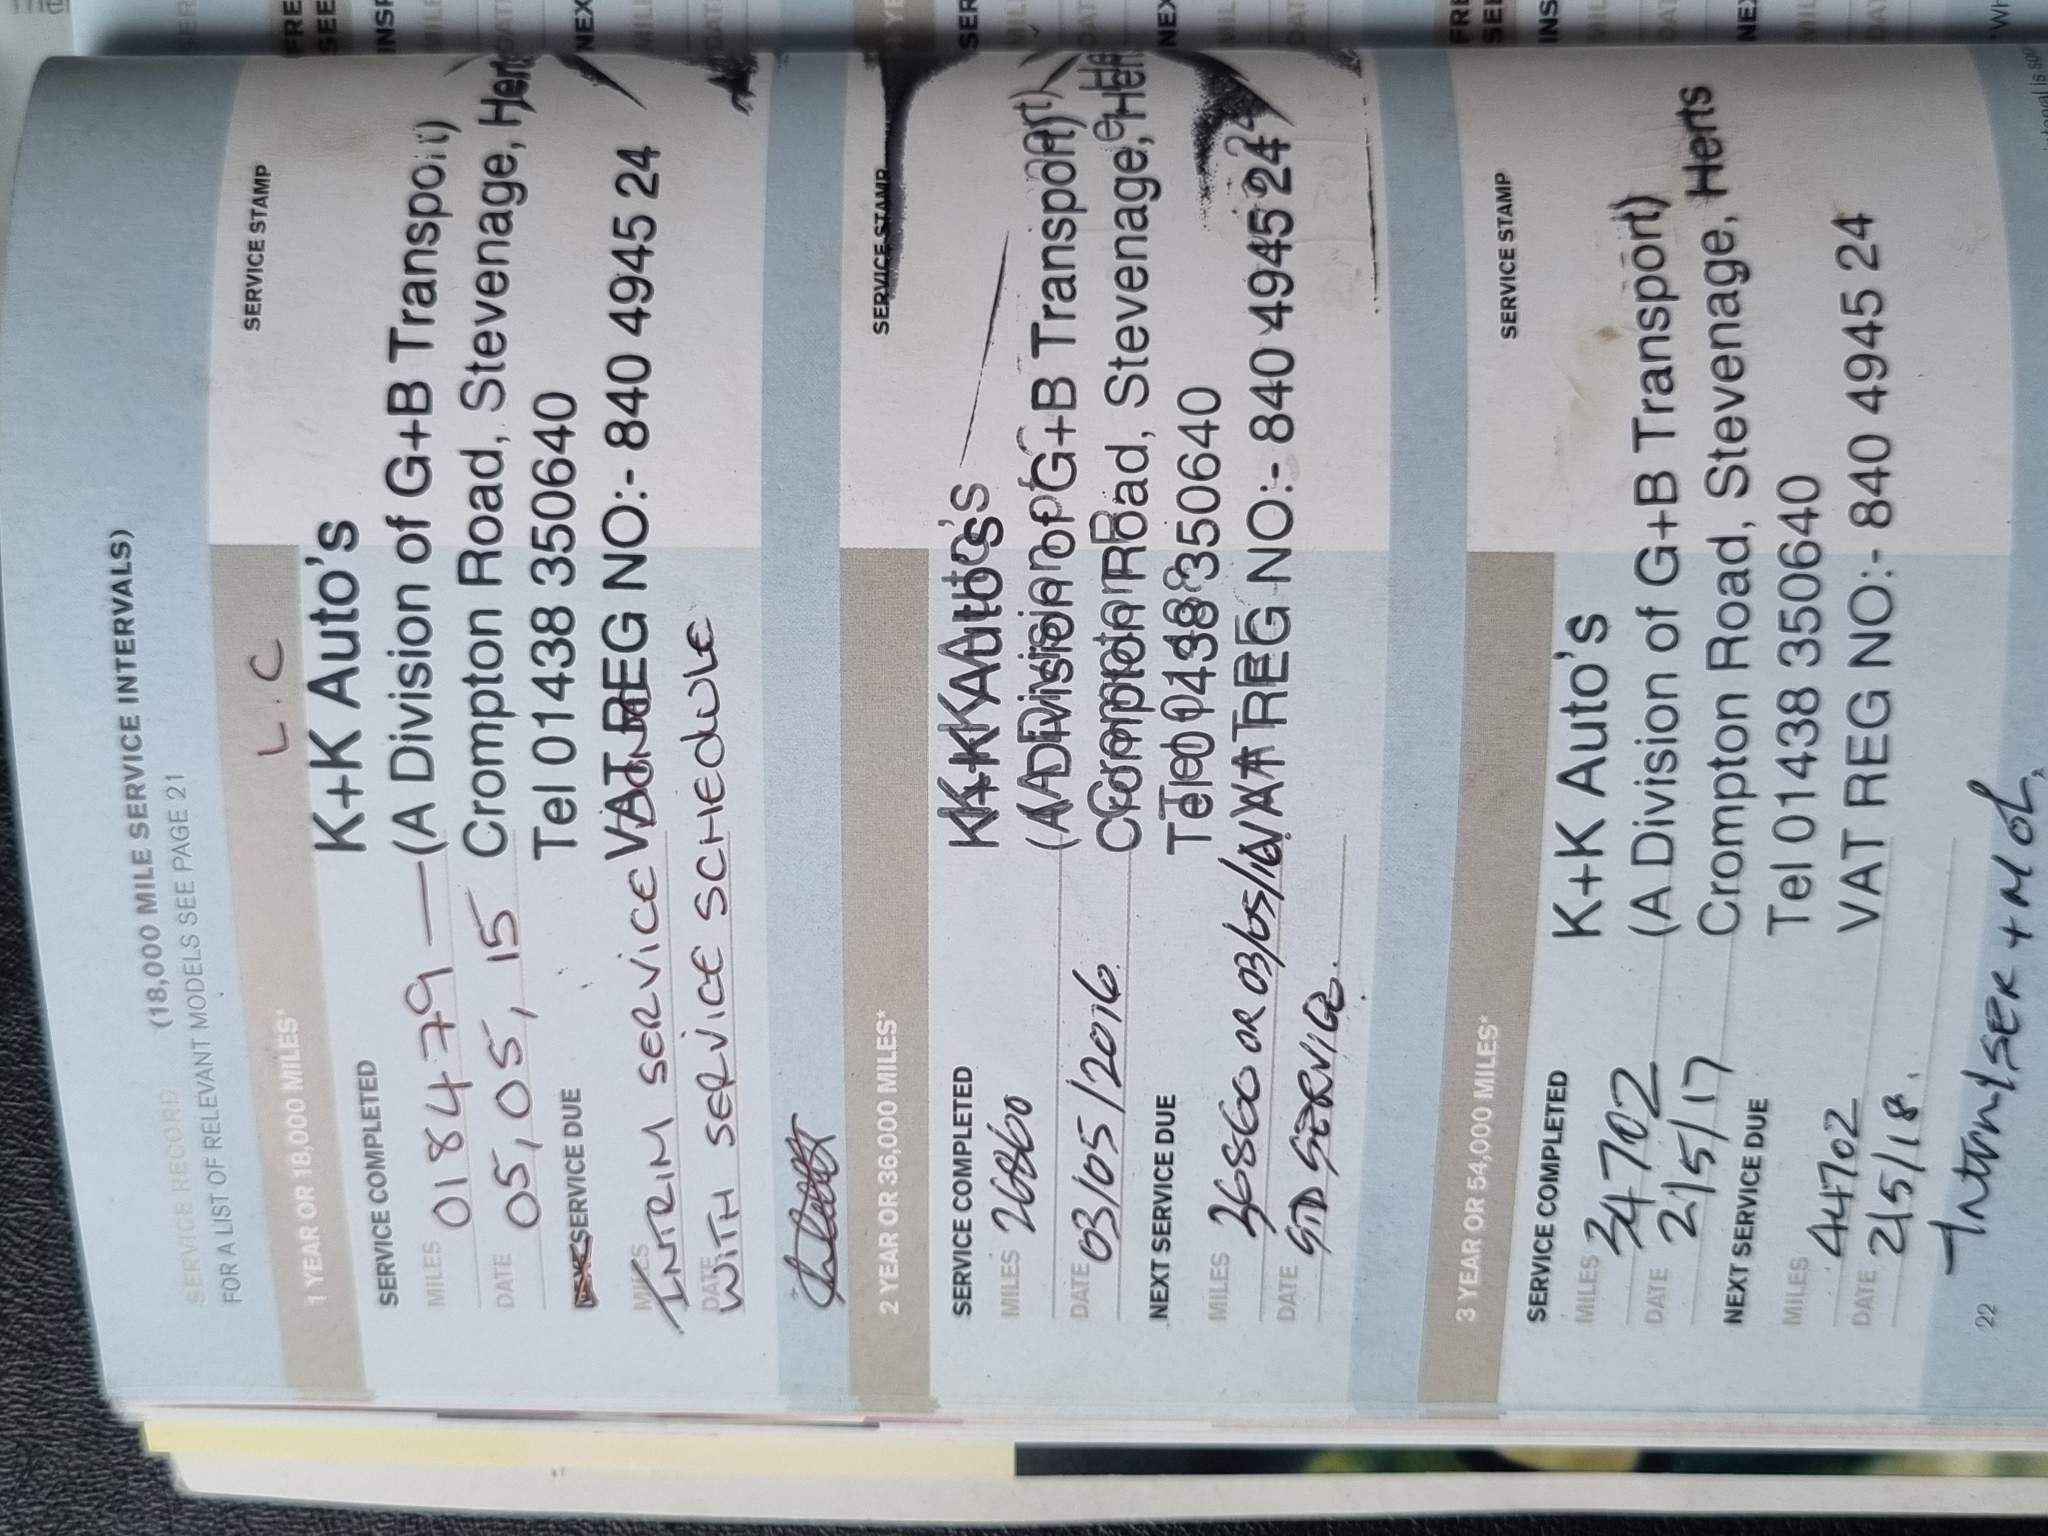 SERVICE RECORD (18,000 MILE SERVICE INTERVALS)
FOR A LIST OF RELEVANT MODELS SEE PAGE 21
1 YEAR OR 18,000 MILES*
L.C
SERVICE STAMP
SERVICE COMPLETED
K+K Auto's
MILES 018479 (A Division of G+B Transport)
DATE 05,05,15 Crompton Road, Stevenage, Herts
SERVICE DUE Tel 01438 350640
MILES INTRIM SERVICE VAT REG NO:- 840 4945 24
DATE WITH SERVICE SCHEDULE
2 YEAR OR 36,000 MILES*
SERVICE STAMP
SERVICE COMPLETED K+K Auto's
MILES 26860 (A Division of G+B Transport)
DATE 03/05/2016 Crompton Road, Stevenage, Herts
NEXT SERVICE DUE Tel 01438 350640
MILES 36860 OR 03/05/ VAT REG NO:- 840 4945 24
DATE STD SERVICE.
3 YEAR OR 54,000 MILES*
SERVICE STAMP
SERVICE COMPLETED K+K Auto's
MILES 34702 (A Division of G+B Transport)
DATE 2/5/17 Crompton Road, Stevenage, Herts
NEXT SERVICE DUE Tel 01438 350640
MILES 44702 VAT REG NO:- 840 4945 24
DATE 2/5/18.
SER + MOT
22